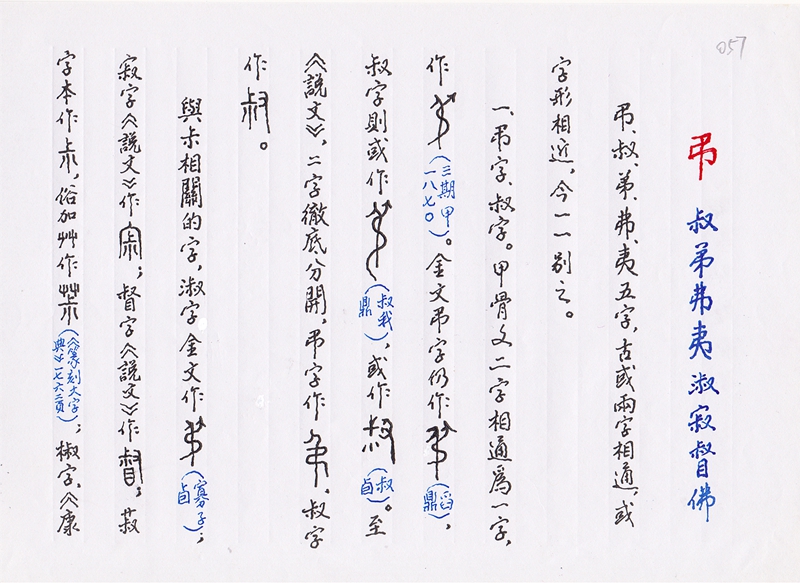 057
弔 叔弟弗夷淑寂督佛
弔、叔、弟、弗、夷五字,古或兩字相通,或
字形相近,今一一別之。
一、弔字、叔字。甲骨文二字相通爲一字,
作(三期甲一八七〇)。金文弔字仍作(鼎),
叔字則或作(叔我鼎),或作(叔卣)。至
《說文》,二字徹底分開,弔字作,叔字
作。
與尗相關的字,淑字金文作(寡子卣);
寂字《說文》作;督字《說文》作;菽
字本作尗,俗加艸作(《篆刻文字典》一七六二頁);椒字,《康